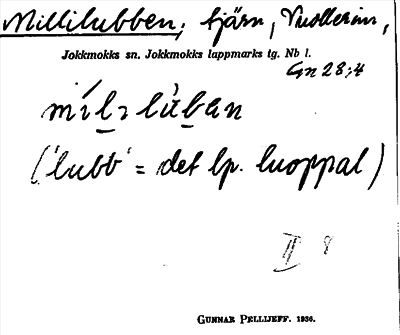 Millilubben; tjärn, Vuollerim,
Jokkmokks sn. Jokkmokks lappmarks tg. Nb l.
Gn 28;4
mílı lùban
('lubb' = det lp. luoppal)
II 8
GUNNAR PELLIJEFF. 1936.